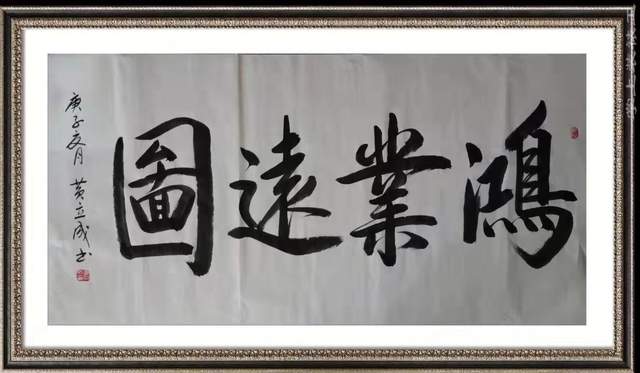 鴻業遠圖
庚子夏月 黄立成书